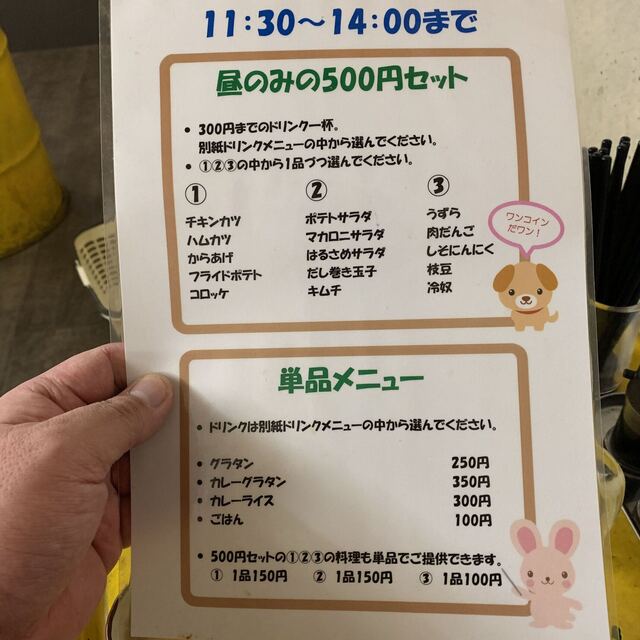 11:30～14:00まで
昼のみの500円セット
• 300円までのドリンク一杯。
別紙ドリンクメニューの中から選んでください。
• ①②③の中から1品づつ選んでください。
① ② ③
チキンカツ ポテトサラダ うずら
ハムカツ マカロニサラダ 肉だんご
からあげ はるさめサラダ しそにんにく
フライドポテト だし巻き玉子 枝豆
コロッケ キムチ 冷奴
ワンコイン
だワン！
単品メニュー
• ドリンクは別紙ドリンクメニューの中から選んでください。
• グラタン 250円
• カレーグラタン 350円
• カレーライス 300円
• ごはん 100円
• 500円セットの①②③の料理も単品でご提供できます。
① 1品150円 ② 1品150円 ③ 1品100円